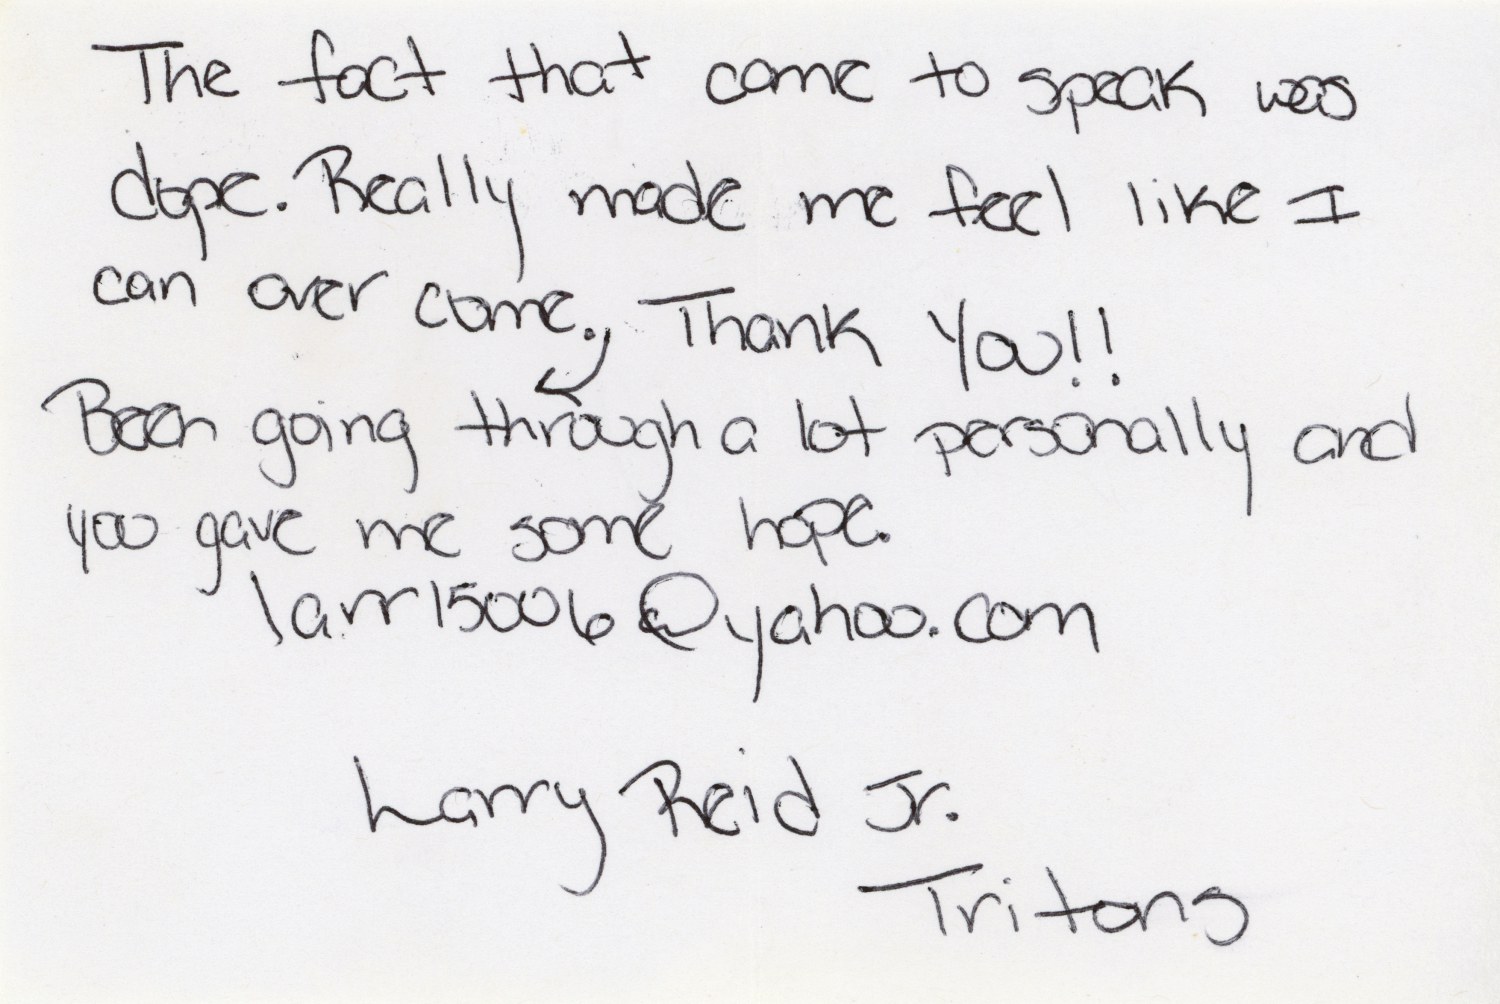 The fact that came to speak was
dope. Really made me feel like I
can over come. Thank You!!
Been going through a lot personally and
you gave me some hope.
larr15006@yahoo.com
Larry Reid Jr.
Tritons